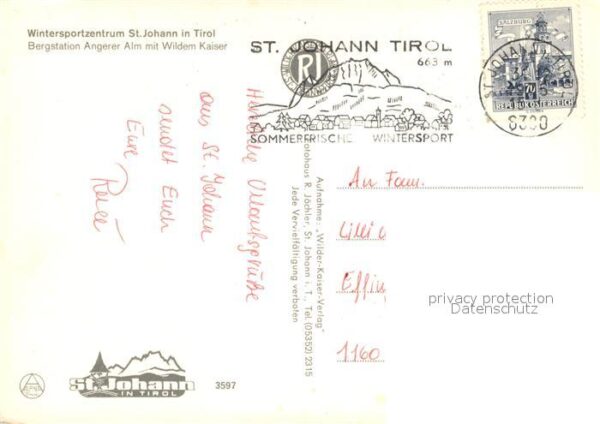 Wintersportzentrum St.Johann in Tirol
Bergstation Angerer Alm mit Wildem Kaiser
ST. JOHANN TIROL
663 m
SOMMERFRISCHE WINTERSPORT
SALZBURG
REPUBLIK ÖSTERREICH
8380
Herzliche Urlaubsgrüße
aus St. Johann
sendet Euch
Eure
Aufnahme: „Wilder-Kaiser-Verlag"
Fotohaus R. Jöchler, St. Johann i. T., Tel. (05352) 2315
Jede Vervielfältigung verboten
An Fam.
Lilli
Effin
1160
privacy protection
Datenschutz
St. Johann
IN TIROL
3597